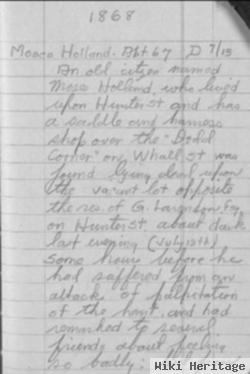 1868
Moses Holland. Abt 67 D 7/13
An old citizen named
Moses Holland, who lived
upon Hunter st and has
a saddle and harness
shop over the "Dodd
Corner" on Whall st was
found lying dead upon
the vacant lot opposite
the res. of G. Esq
on Hunter st. about dark
last evening (July 13th)
Some hours before he
had suffered from an
attack of palpitation
of the heart, and had
remarked to several
friends about feeling
so badly;
Wiki Heritage